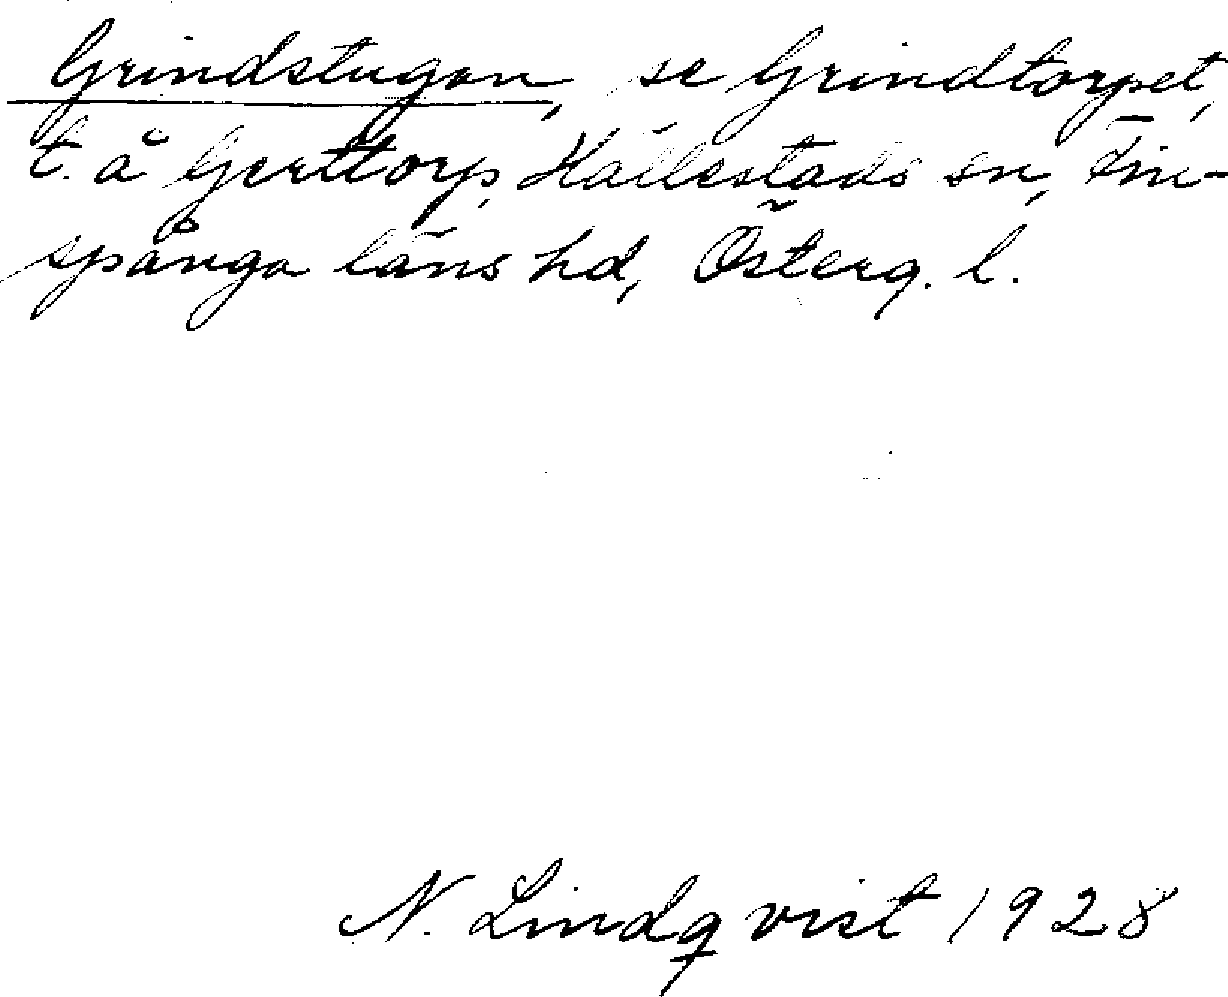 Grindstugan, se Grindtorpet,
t. å Gerttorp, Hällestads sn, Fin-
spånga läns hd, Österg. l.
N. Lindqvist 1928